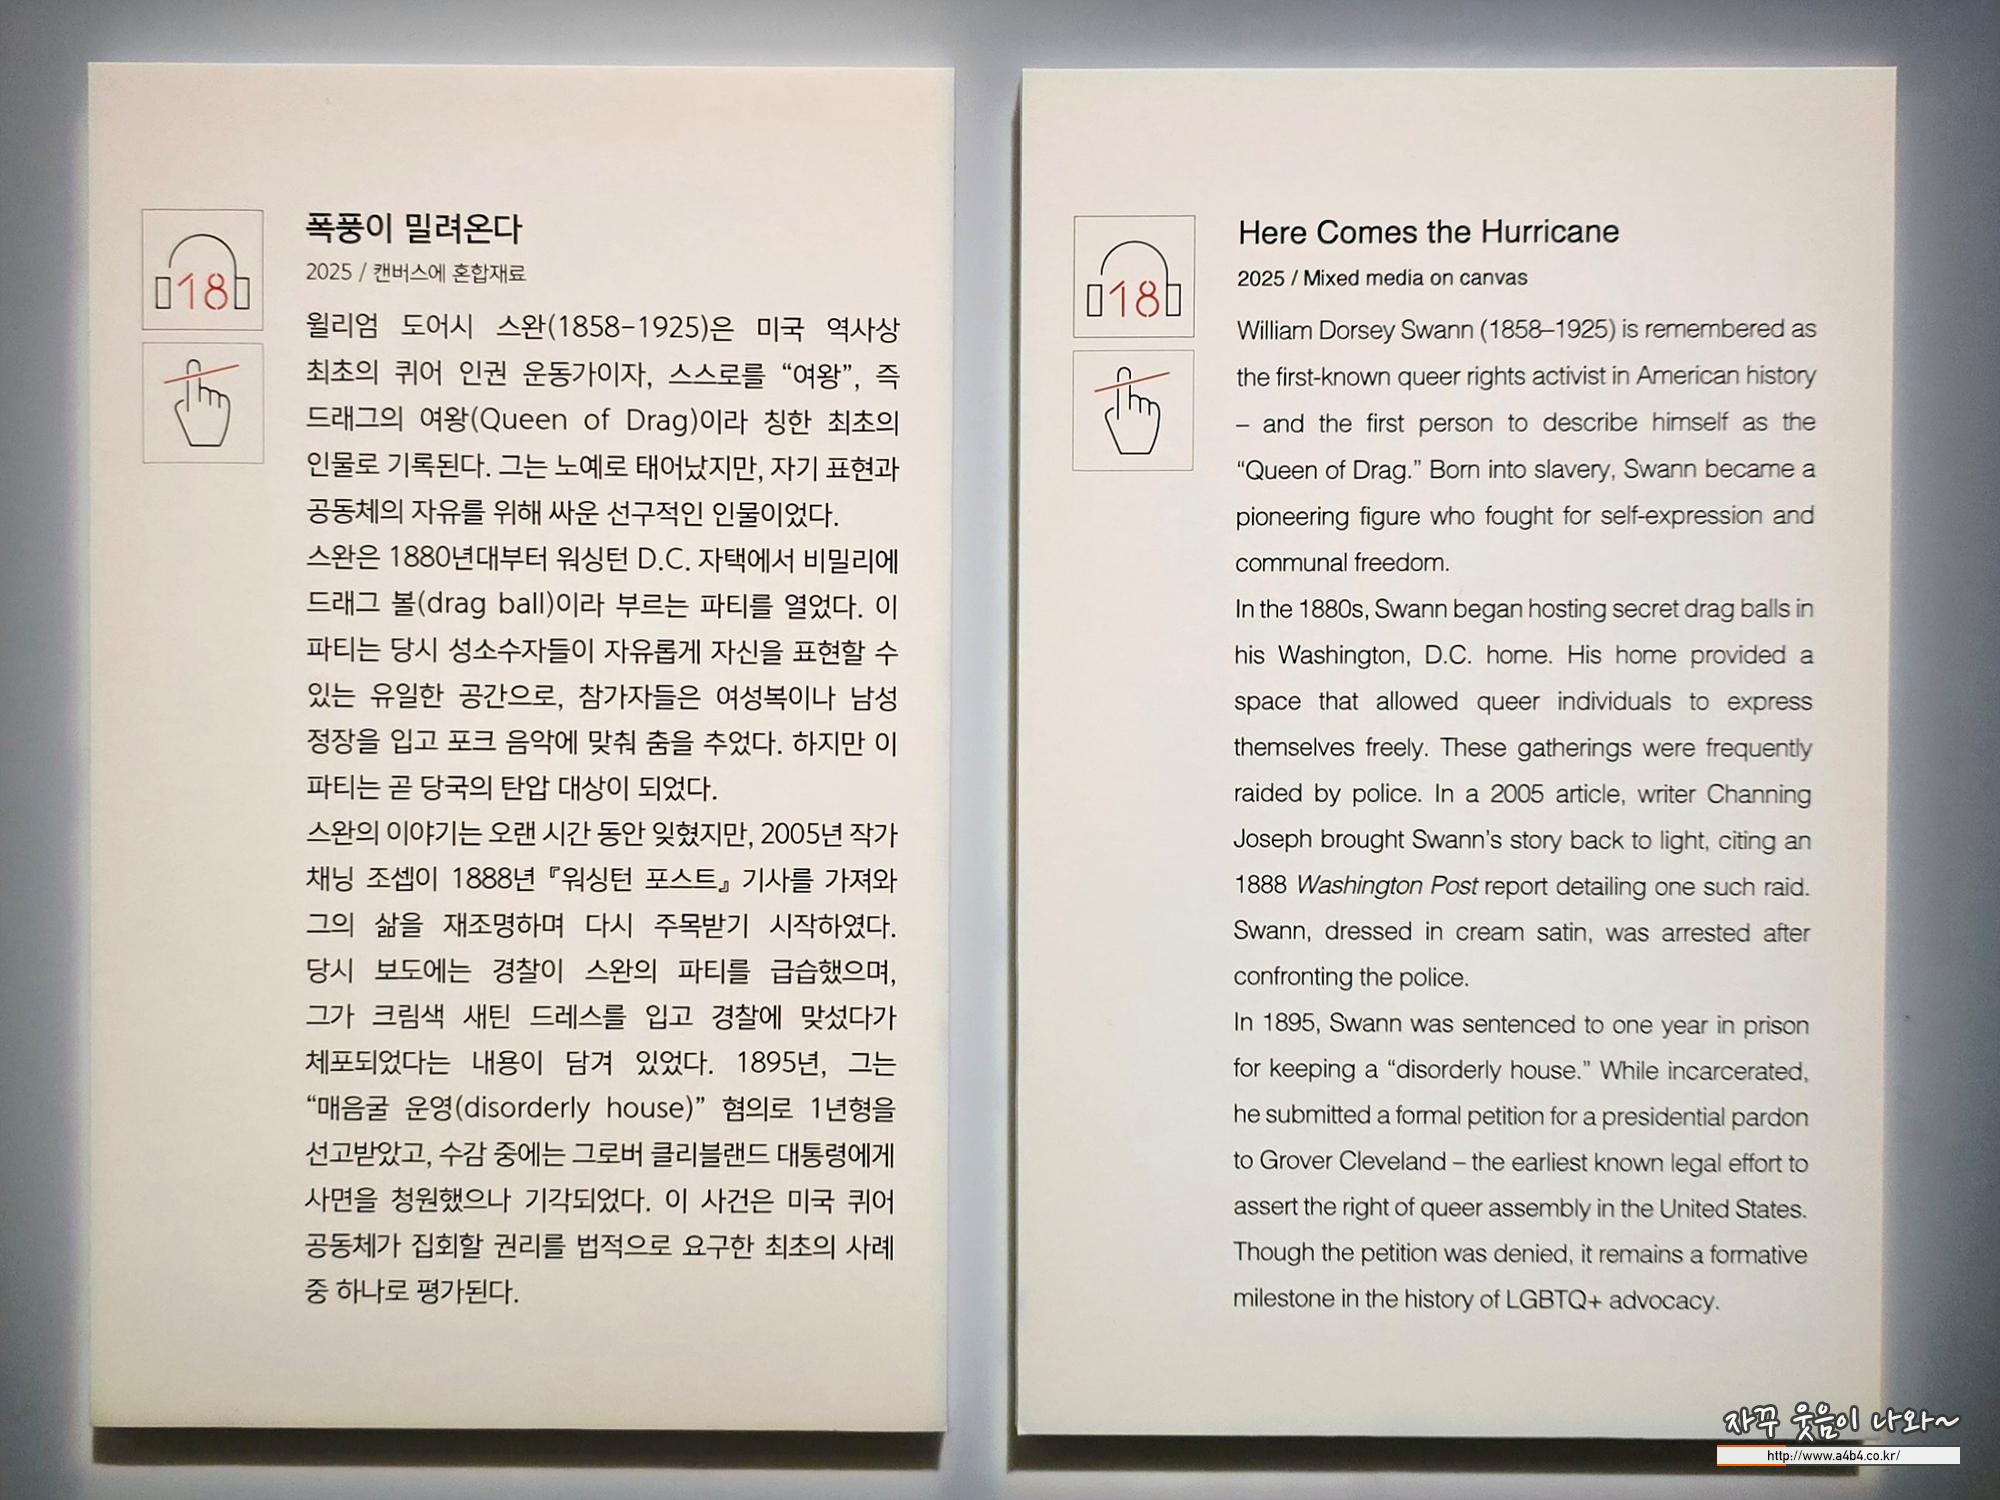 18
폭풍이 밀려온다
2025 / 캔버스에 혼합재료
윌리엄 도어시 스완(1858-1925)은 미국 역사상
최초의 퀴어 인권 운동가이자, 스스로를 “여왕”, 즉
드래그의 여왕(Queen of Drag)이라 칭한 최초의
인물로 기록된다. 그는 노예로 태어났지만, 자기 표현과
공동체의 자유를 위해 싸운 선구적인 인물이었다.
스완은 1880년대부터 워싱턴 D.C. 자택에서 비밀리에
드래그 볼(drag ball)이라 부르는 파티를 열었다. 이
파티는 당시 성소수자들이 자유롭게 자신을 표현할 수
있는 유일한 공간으로, 참가자들은 여성복이나 남성
정장을 입고 포크 음악에 맞춰 춤을 추었다. 하지만 이
파티는 곧 당국의 탄압 대상이 되었다.
스완의 이야기는 오랜 시간 동안 잊혔지만, 2005년 작가
채닝 조셉이 1888년 『워싱턴 포스트』 기사를 가져와
그의 삶을 재조명하며 다시 주목받기 시작하였다.
당시 보도에는 경찰이 스완의 파티를 급습했으며,
그가 크림색 새틴 드레스를 입고 경찰에 맞섰다가
체포되었다는 내용이 담겨 있었다. 1895년, 그는
“매음굴 운영(disorderly house)” 혐의로 1년형을
선고받았고, 수감 중에는 그로버 클리블랜드 대통령에게
사면을 청원했으나 기각되었다. 이 사건은 미국 퀴어
공동체가 집회할 권리를 법적으로 요구한 최초의 사례
중 하나로 평가된다.
18
Here Comes the Hurricane
2025 / Mixed media on canvas
William Dorsey Swann (1858–1925) is remembered as
the first-known queer rights activist in American history
– and the first person to describe himself as the
“Queen of Drag.” Born into slavery, Swann became a
pioneering figure who fought for self-expression and
communal freedom.
In the 1880s, Swann began hosting secret drag balls in
his Washington, D.C. home. His home provided a
space that allowed queer individuals to express
themselves freely. These gatherings were frequently
raided by police. In a 2005 article, writer Channing
Joseph brought Swann’s story back to light, citing an
1888 Washington Post report detailing one such raid.
Swann, dressed in cream satin, was arrested after
confronting the police.
In 1895, Swann was sentenced to one year in prison
for keeping a “disorderly house.” While incarcerated,
he submitted a formal petition for a presidential pardon
to Grover Cleveland – the earliest known legal effort to
assert the right of queer assembly in the United States.
Though the petition was denied, it remains a formative
milestone in the history of LGBTQ+ advocacy.
자꾸 웃음이 나와~
http://www.a4b4.co.kr/